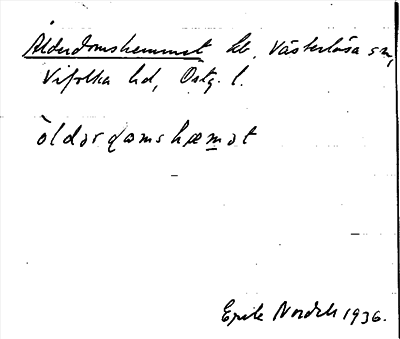 Ålderdomshemmet hb, Västerlösa sn,
Vifolka hd, Östg. l.
 òldərdamshæmət
1936.